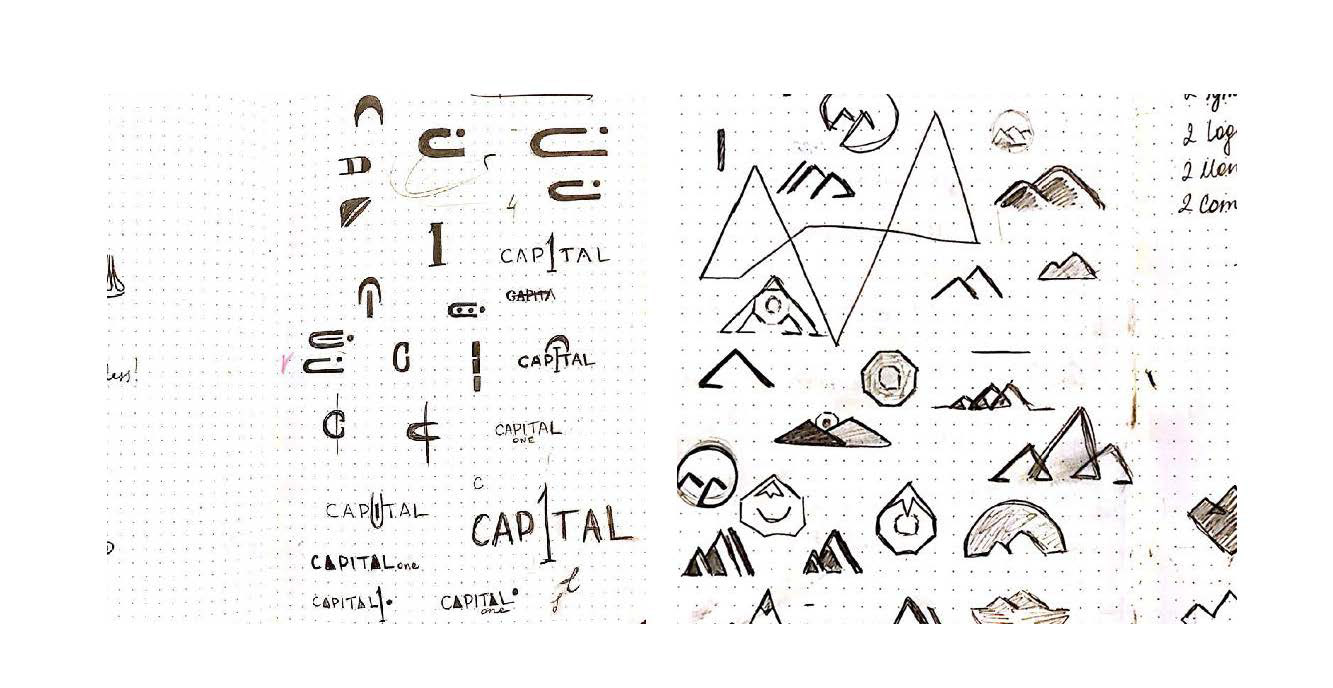 less!
4
CAP1TAL
CAPITA
C
CAPITAL
CAPITAL
ONE
C
CAPITAL
CAP1TAL
CAPITALone
CAPITAL1
CAPITAL
one
2 Log
2
2 Com